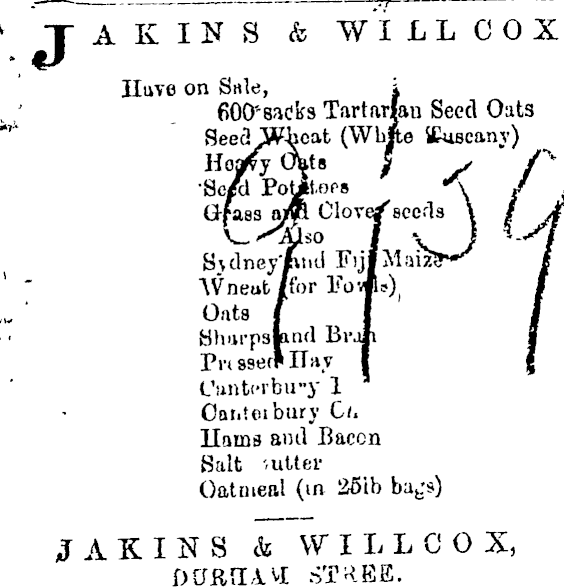 JAKINS & WILLCOX
Have on Sale,
600 sacks Tartarian Seed Oats
Seed Wheat (White Tuscany)
Heavy Oats
Seed Potatoes
Grass and Clover seeds
Also
Sydney and Fiji Maize
Wheat (for Fowls)
Oats
Sharps and Bran
Pressed Hay
Canterbury
Canterbury
Hams and Bacon
Salt utter
Oatmeal (in 25lb bags)
JAKINS & WILLCOX,
DURHAM STREE.